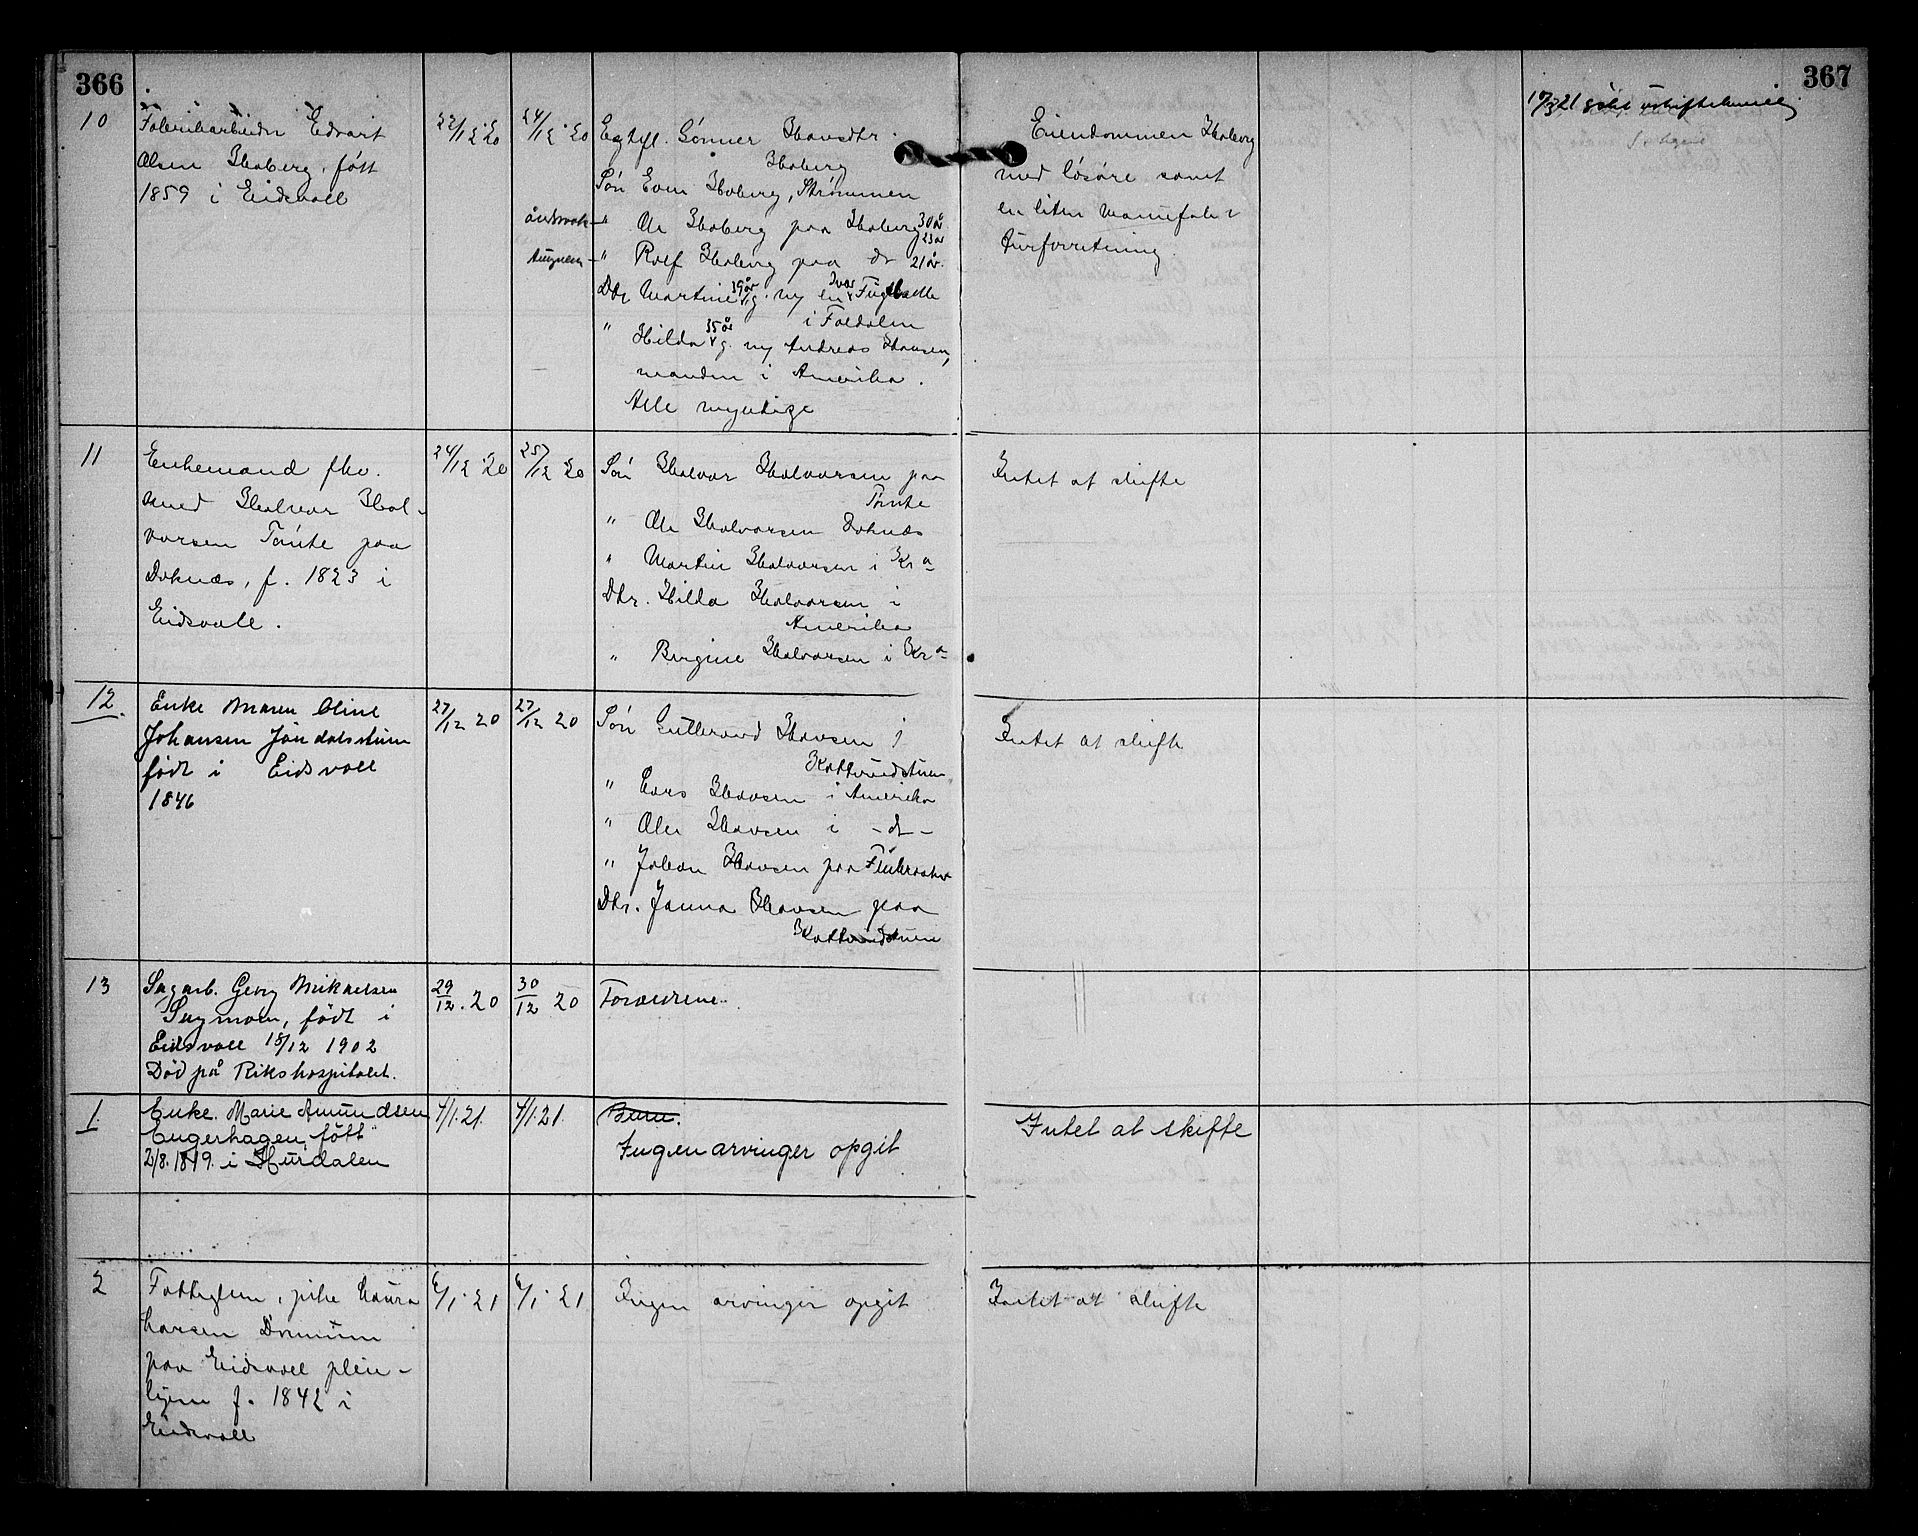 366
367
10
Fabrikarbeider Edvart
Olsen Hoberg, født
1859 i Eidsvoll
22/12 20
24/12 20
Egtefl. Gønner Hansdtr.
Hoberg
Søn Even Hoberg, Strømmen
" Ole Hoberg paa Hoberg 30 år
23 år
" Rolf Hoberg paa do 21 år.
Dtr Martine 39 år g. m
i
" Hilda 35 år g. m Andreas Hansen,
manden i Amerika.
Alle myndige
Eiendommen Hoberg
med løsøre samt
en liten manufak-
turforretning.
17/3 21
11
Enkemand fhv.
Halvor Hal-
vorsen Tønte paa
Doknæs, f. 1823 i
Eidsvoll.
24/12 20
25/12 20
Søn Halvor Halvorsen paa
Tønte
" Ole Halvorsen Doknæs
" Martin Halvorsen i Kra
Dtr. Hilda Halvorsen i
Amerika
" Bergine Halvorsen i Kra
Intet at skifte
12.
Enke Maren Oline
Johansen Jøndalsstuen
født i Eidsvoll
1846
27/12 20
27/12 20
Søn Gulbrand Hansen i
" Lars Hansen i Amerika
" Ole Hansen i - do -
" Johan Hansen paa
Dtr. Janna Hansen paa
Intet at skifte
13
Sagarb. Georg Mikaelsen
Sagmoen, født i
Eidsvoll 18/12 1902
Død på Rikshospitalet.
29/12. 20
30/12 20
Forældrene.
1.
Enke. Marie Amundsen
Engerhagen, født
2/8. 1819. i Hurdalen
4/1. 21.
4/1. 21.
Barn.
Ingen arvinger opgit
Intet at skifte
2
Fattiglem, pike Laura
Larsen Dønnum
paa Eidsvoll pleie-
hjem f. 1842 i
Eidsvoll
6/1. 21
6/1. 21
Ingen arvinger opgit
Intet at skifte